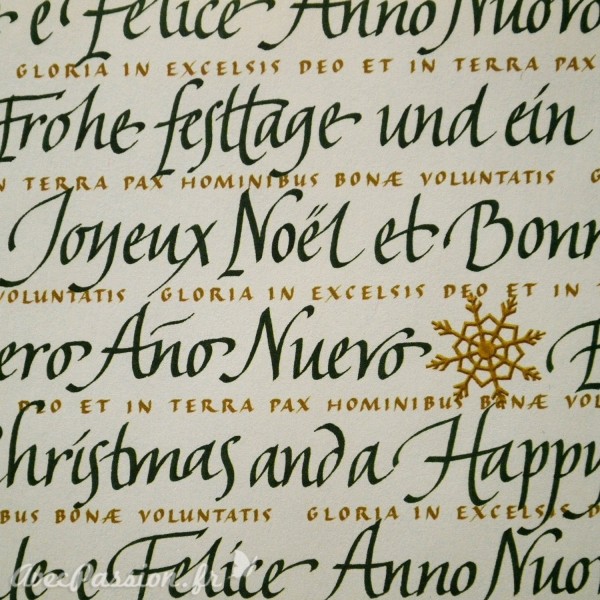 e Felice Anno Nuovo
GLORIA IN EXCELSIS DEO ET IN TERRA PAX
Frohe festtage und ein
IN TERRA PAX HOMINIBUS BONÆ VOLUNTATIS G
Joyeux Noël et Bonn
VOLUNTATIS GLORIA IN EXCELSIS DEO ET IN T
ero Año Nuevo
DEO ET IN TERRA PAX HOMINIBUS BONÆ VOL
Christmas and a Happy
BUS BONÆ VOLUNTATIS GLORIA IN EXCELSIS D
le e Felice Anno Nuo
AbezPassion.fr